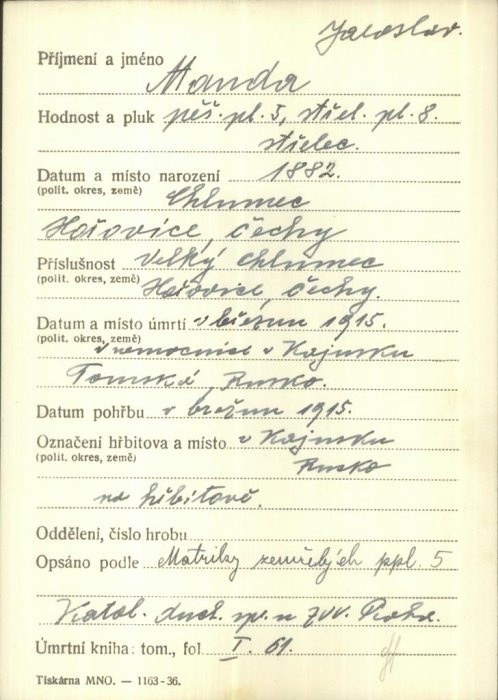 Jaroslav.
Příjmení a jméno Manda
Hodnost a pluk pěš. pl. 5, střel. pl. 8.
střelec.
Datum a místo narození 1882.
(polit. okres, země) Chlumec
Hořovice, čechy
Příslušnost Velký Chlumec
(polit. okres, země) Hořovice, čechy.
Datum a místo úmrtí v březnu 1915.
(polit. okres, země) v nemocnici v Kajnsku
Tomská, Rusko.
Datum pohřbu v březnu 1915.
Označení hřbitova a místo v Kajnsku
(polit. okres, země) Rusko
na hřbitově.
Oddělení, číslo hrobu
Opsáno podle Matriky zemřelých ppl. 5
Katol. duch. spr. u ZVV. Praha.
Úmrtní kniha: tom., fol. I. 61.
Tiskárna MNO. — 1163-36.